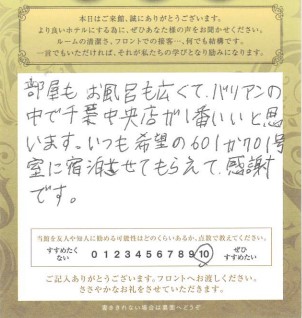 本日はご来館、誠にありがとうございます。
より良いホテルにする為に、ぜひあなた様の声をお聞かせください。
ルームの清潔さ、フロントでの接客…、何でも結構です。
一言でもいただければ、それが私たちの学びとなり励みになります。
部屋も お風呂も広くて、バリアンの
中で千葉中央店が1番いいと思
います。いつも希望の601か701号
室に宿泊させてもらえて、感謝
です。
当館を友人や知人に勧める可能性はどのくらいあるか、点数で教えてください。
すすめたく
ない
0 1 2 3 4 5 6 7 8 9 10
ぜひ
すすめたい
ご記入ありがとうございます。フロントへお渡しください。
ささやかなお礼をさせていただきます。
書ききれない場合は裏面へどうぞ